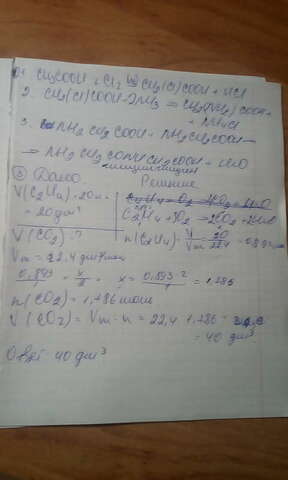 1. CH3COOH + Cl2 → CH2(Cl)COOH + HCl
2. CH2(Cl)COOH + 2NH3 → CH2(NH2)COOH +
+ NH4Cl
3. NH2CH2COOH + NH2CH2COOH →
→ NH2CH2CONHCH2COOH + H2O
③ Дано: Решение
V(C2H4) = 20
= 20 дм³ C2H4 + 3O2 → 2CO2 + 2H2O
V(CO2) - ? n(C2H4) = V/Vm = 20/22,4 =
Vm = 22,4 дм³/моль
0,893/1 = x/2 x = 0,893·2/1 = 1,786
n(CO2) = 1,786 моль
V(CO2) = Vm · n = 22,4 · 1,786 =
= 40 дм³
Ответ: 40 дм³